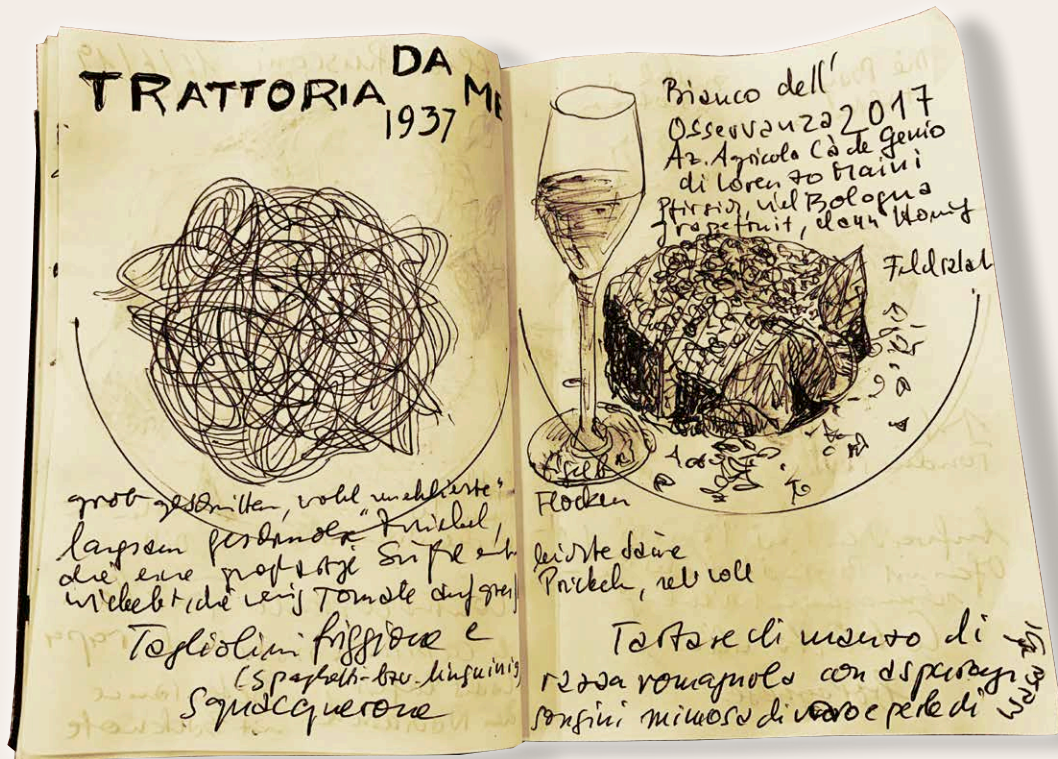 TRATTORIA DA ME
1937
grob geschnitten, wohl
langsam Zwiebel,
die eine Süße ent
wickelt, die Tomate
Tagliolini friggione e
(spaghetti-bzw. linguinig
Squacquerone
Bianco dell'
Osservanza 2017
Az. Agricola Cà de Genio
di Lorenzo Maini
Pfirsich, viel Bologna
Grapefruit, dann Honig
Feldsalat
Flocken
leichte
Prickeln, voll
Tartare di manzo di
razza romagnola con asparagi
songini mimosa di uovo e perle di